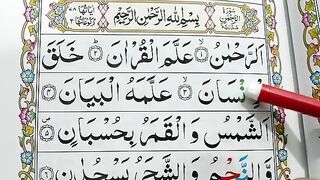 سورة الرحمن مدنية
بِسْمِ اللهِ الرَّحْمٰنِ الرَّحِيْمِ
اَلرَّحْمٰنُ ۙ﴿١﴾ عَلَّمَ الْقُرْاٰنَ ؕ﴿٢﴾ خَلَقَ
الْاِنْسَانَ ۙ﴿٣﴾ عَلَّمَهُ الْبَيَانَ ﴿٤﴾
اَلشَّمْسُ وَ الْقَمَرُ بِحُسْبَانٍ ﴿٥﴾
وَّ النَّجْمُ وَ الشَّجَرُ يَسْجُدٰنِ ﴿٦﴾